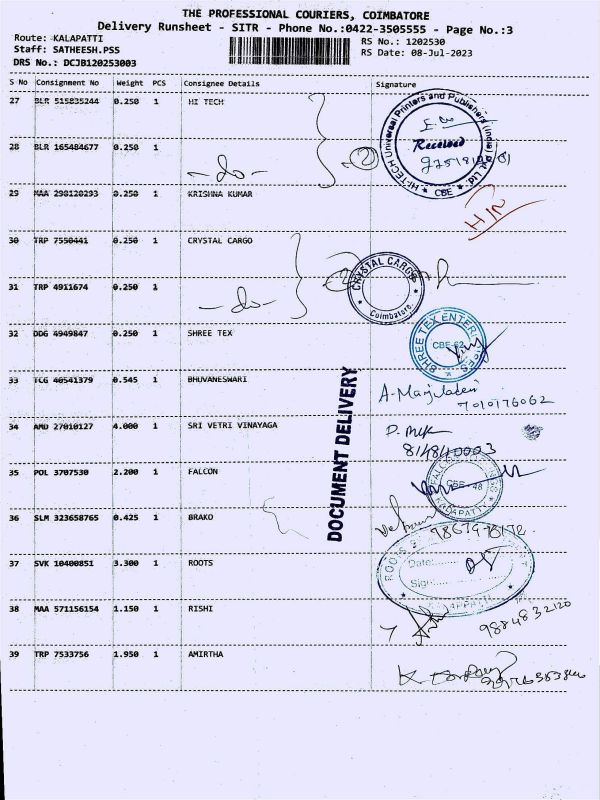 THE PROFESSIONAL COURIERS, COIMBATORE
Delivery Runsheet - SITR - Phone No.:0422-3505555 - Page No.:3
Route: KALAPATTI
Staff: SATHEESH.PSS
DRS No.: DCJB120253003
RS No.: 1202530
RS Date: 08-Jul-2023
S No Consignment No Weight PCS Consignee Details Signature
27 BLR 515835244 0.250 1 HI TECH
28 BLR 165484677 0.250 1
-do-
HI-TECH Universal Printers and Publishers (India) Pvt. Ltd. * CBE *
Received
29 MAA 298120293 0.250 1 KRISHNA KUMAR
30 TRP 7550441 0.250 1 CRYSTAL CARGO
31 TRP 4911674 0.250 1
-do-
CRYSTAL CARGO
Coimbatore.
32 DDG 4949847 0.250 1 SHREE TEX
SHREE TEX ENTERPRISES
CBE-62
33 TCG 40541379 0.545 1 BHUVANESWARI
7010176062
34 AMD 27010127 4.000 1 SRI VETRI VINAYAGA
814840003
DOCUMENT DELIVERY
35 POL 3707530 2.200 1 FALCON
CBE-48
KALAPATTI
36 SLM 323658765 0.425 1 BRAKO
37 SVK 10400851 3.300 1 ROOTS
ROOTS
Date:
Sign:
38 MAA 571156154 1.150 1 RISHI
9884832120
39 TRP 7533756 1.950 1 AMIRTHA